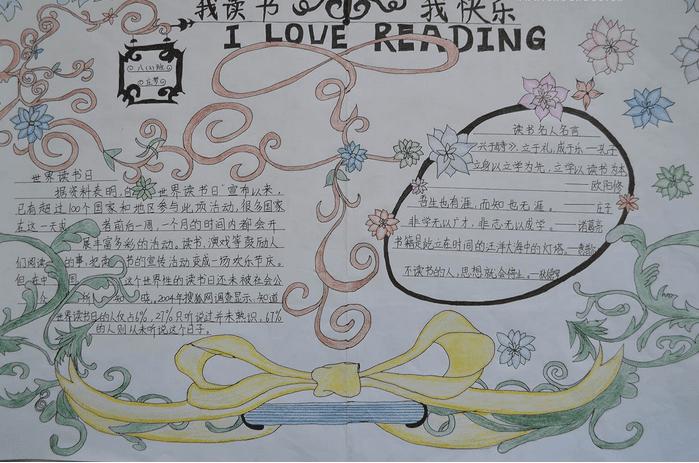 我读书 我快乐
I LOVE READING
八(3)班
世界读书日
据资料表明,自"世界读书日"宣布以来,
已有超过100个国家和地区参与此项活动,很多国家
在这一天或者前后一周,一个月的时间内都会开
展丰富多彩的活动。读书、演戏等鼓励人
们阅读的事,把读书的宣传活动变成一场欢乐节庆。
但在中国,这个世界性的读书日还未被社会公
2004年搜狐网调查显示,知道
世界读书日的人仅占6%,27%只听说过并未熟识,67%
的人则从未听说这个日子。
读书名人名言
兴于《诗》,立于礼,成于乐 —孔子
立身以立学为先,立学以读书为本
——欧阳修
吾生也有涯,而知也无涯。
——庄子
非学无以广才,非志无以成学。—诸葛亮
书籍是屹立在时间的汪洋大海中的灯塔。
不读书的人,思想就会停止。